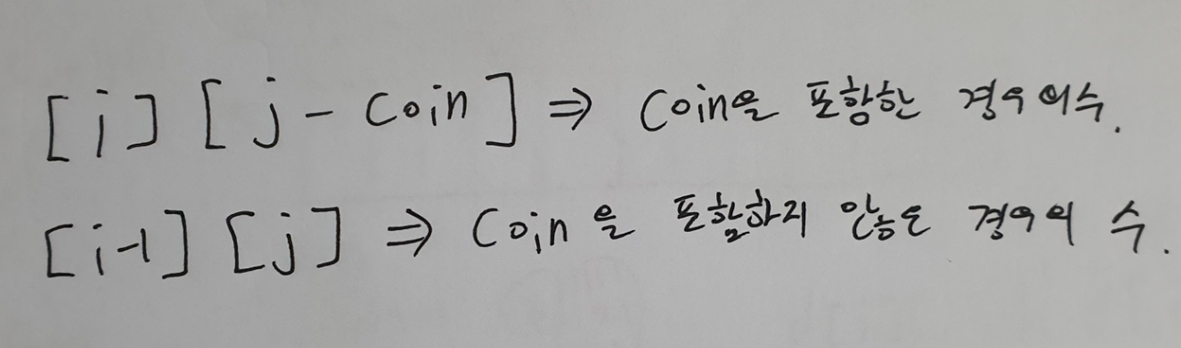 [i] [j - Coin] ⇒ Coin을 포함한 경우의수.
[i-1] [j] ⇒ Coin을 포함하지 않는 경우의 수.